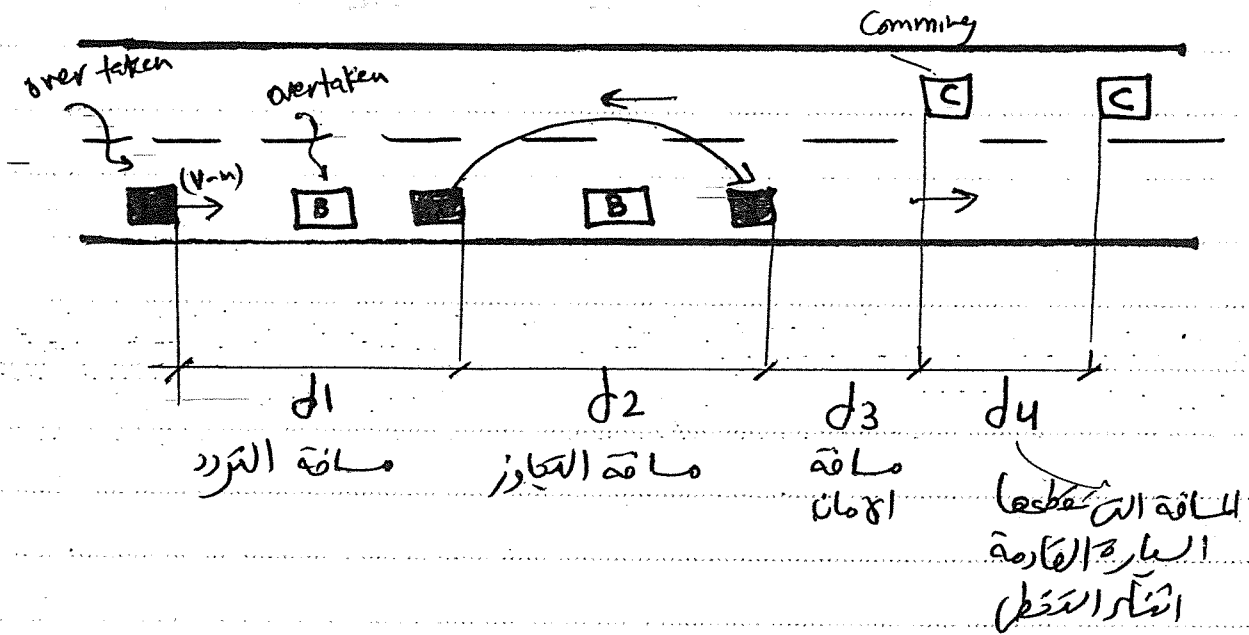 Comming
over taken
overtaken
C
C
(V-m)
B
B
d1
d2
d3
d4
مسافة التردد
مسافة التجاوز
مسافة
الامان
المسافة التي تقطعها
السيارة القادمة
اثناء التخطي